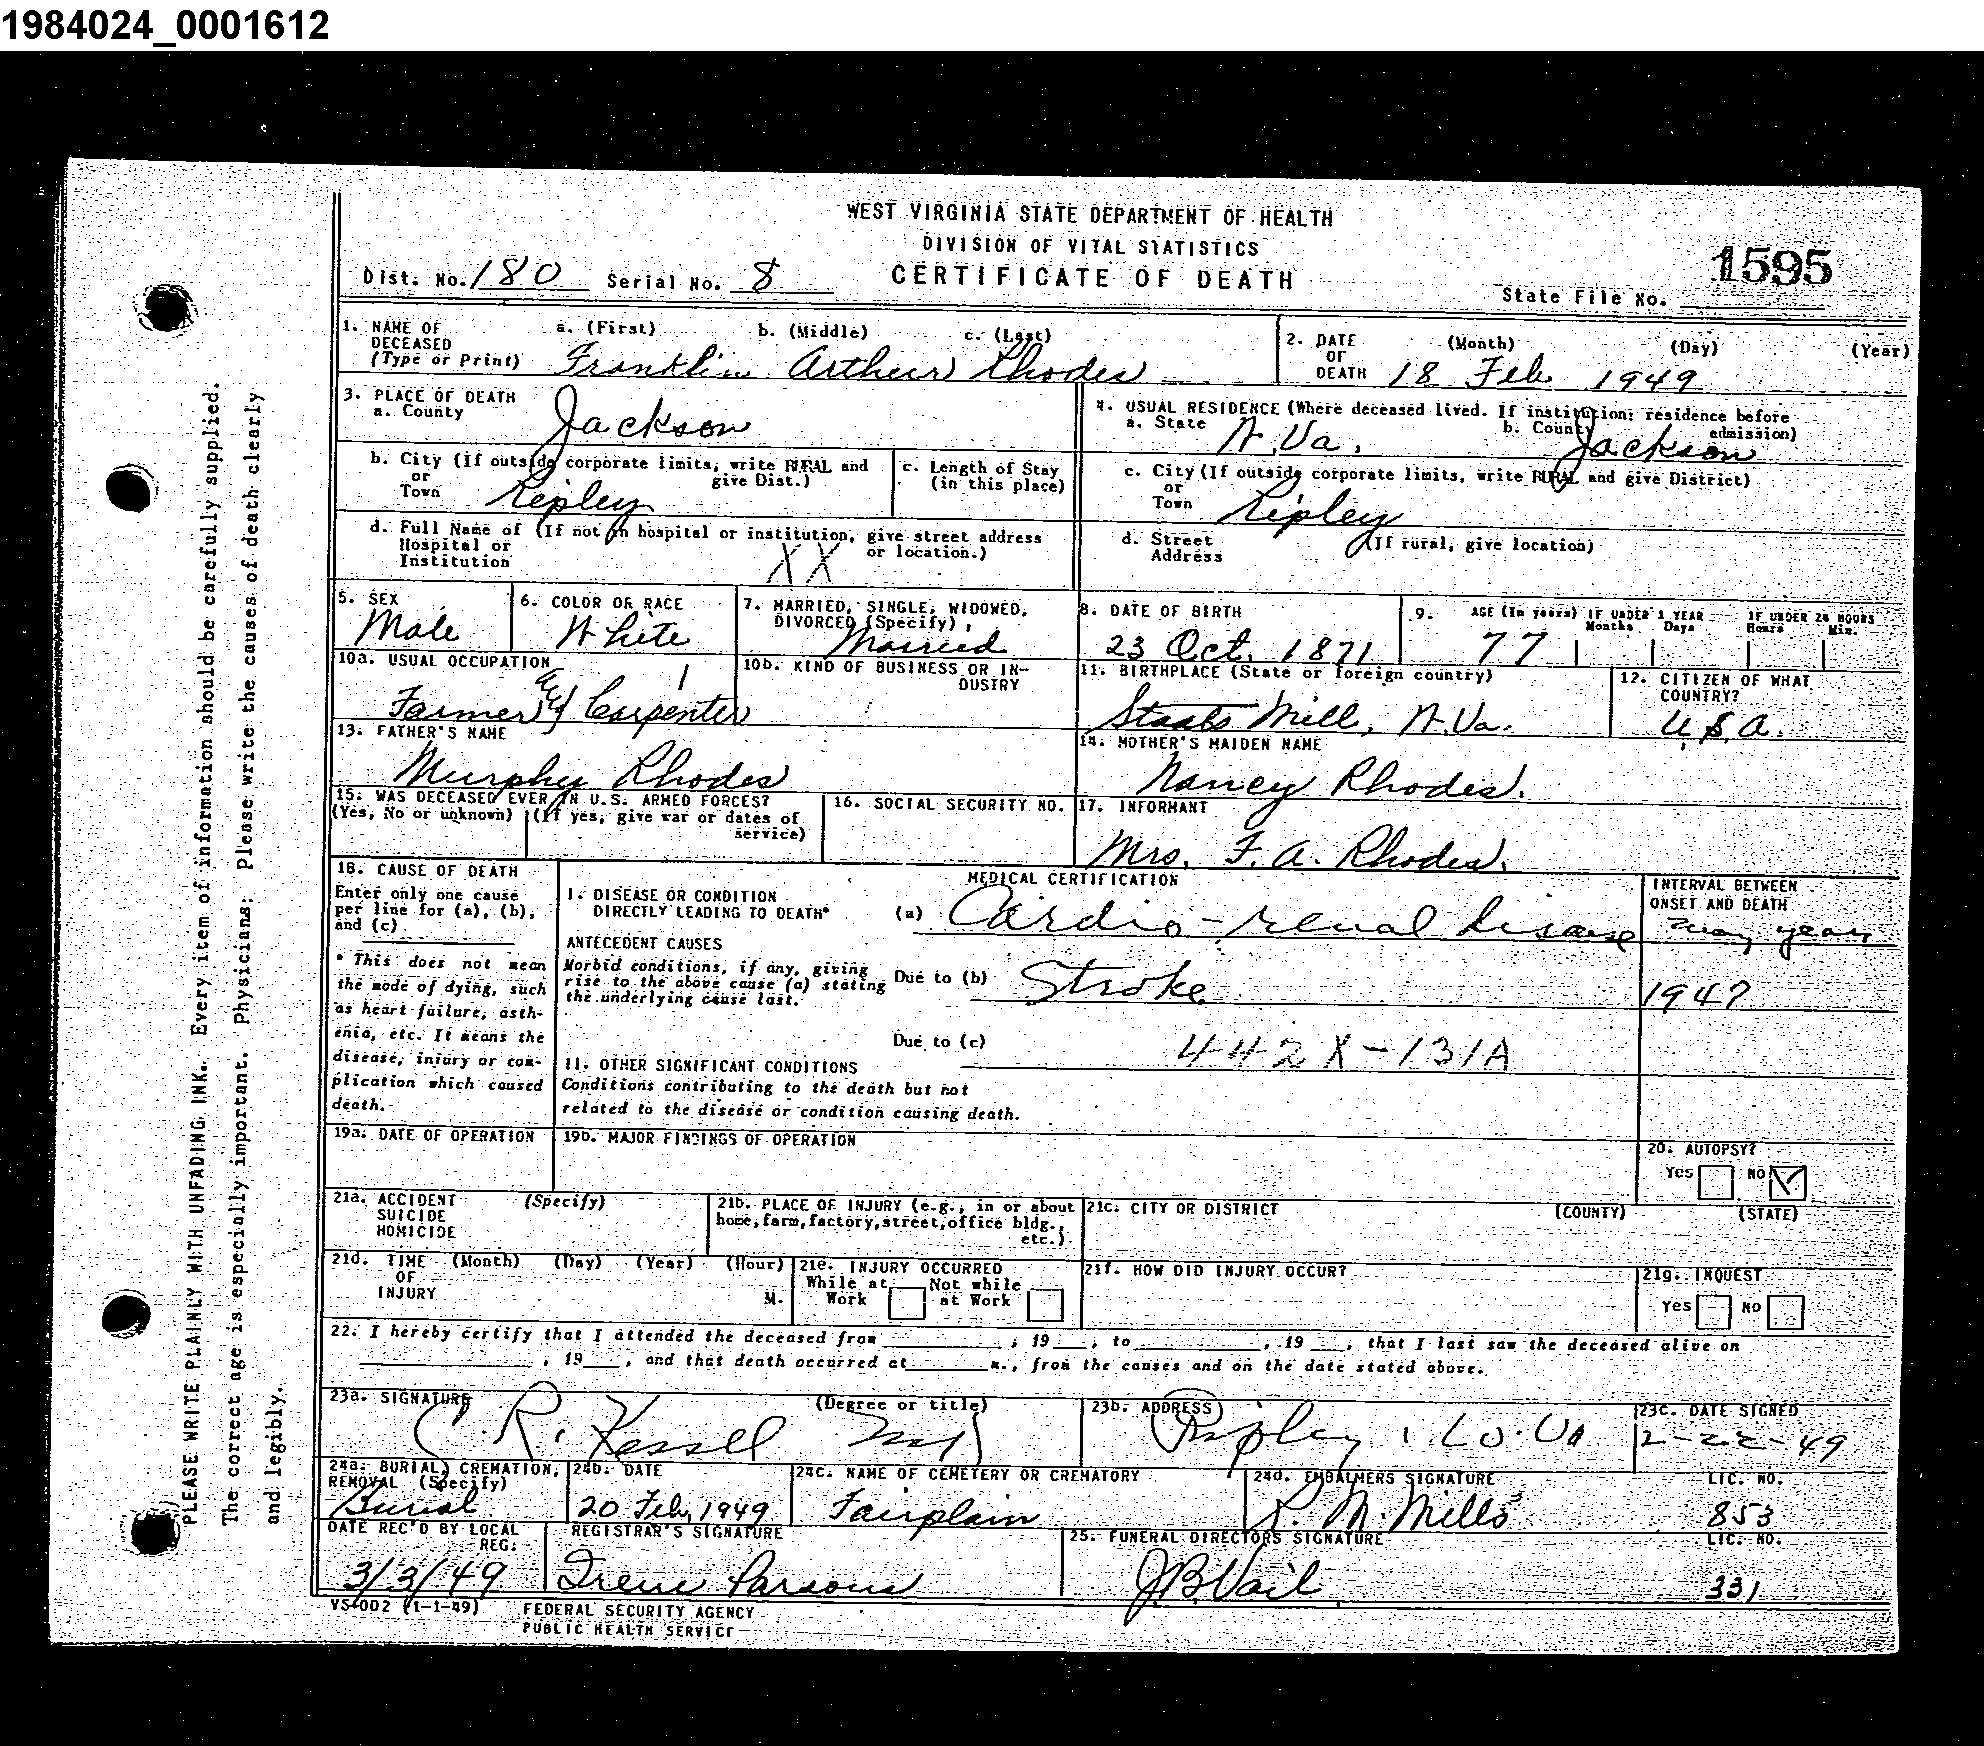 1984024_0001612
WEST VIRGINIA STATE DEPARTMENT OF HEALTH
DIVISION OF VITAL STATISTICS
CERTIFICATE OF DEATH
Dist. No. 180 Serial No. 8
State File No. 1595
1. NAME OF DECEASED (Type or Print) a. (First) b. (Middle) c. (Last)
Franklin Arthur Rhodes
2. DATE OF DEATH (Month) (Day) (Year)
18 Feb. 1949
3. PLACE OF DEATH
a. County Jackson
4. USUAL RESIDENCE (Where deceased lived. If institution: residence before admission)
a. State W.Va. b. County Jackson
b. City (If outside corporate limits, write RURAL and give Dist.)
or Town Ripley
c. Length of Stay (in this place)
c. City (If outside corporate limits, write RURAL and give District)
or Town Ripley
d. Full Name of Hospital or Institution (If not in hospital or institution, give street address or location.)
XX
d. Street Address (If rural, give location)
5. SEX
Male
6. COLOR OR RACE
White
7. MARRIED, SINGLE, WIDOWED, DIVORCED (Specify)
Married
8. DATE OF BIRTH
23 Oct. 1871
9. AGE (In years) IF UNDER 1 YEAR Months Days IF UNDER 24 HOURS Hours Min.
77
10a. USUAL OCCUPATION
Farmer & Carpenter
10b. KIND OF BUSINESS OR INDUSTRY
11. BIRTHPLACE (State or foreign country)
Staats Mill, W.Va.
12. CITIZEN OF WHAT COUNTRY?
U.S.A.
13. FATHER'S NAME
Murphy Rhodes
14. MOTHER'S MAIDEN NAME
Nancy Rhodes.
15. WAS DECEASED EVER IN U.S. ARMED FORCES?
(Yes, No or unknown) (If yes, give war or dates of service)
16. SOCIAL SECURITY NO.
17. INFORMANT
Mrs. F. A. Rhodes.
18. CAUSE OF DEATH
Enter only one cause per line for (a), (b), and (c)
* This does not mean the mode of dying, such as heart failure, asthenia, etc. It means the disease, injury or complication which caused death.
MEDICAL CERTIFICATION
INTERVAL BETWEEN ONSET AND DEATH
I. DISEASE OR CONDITION DIRECTLY LEADING TO DEATH* (a) Cardio-renal disease many years
ANTECEDENT CAUSES
Morbid conditions, if any, giving rise to the above cause (a) stating the underlying cause last.
Due to (b) Stroke 1947
Due to (c)
442X-131A
II. OTHER SIGNIFICANT CONDITIONS
Conditions contributing to the death but not related to the disease or condition causing death.
19a. DATE OF OPERATION
19b. MAJOR FINDINGS OF OPERATION
20. AUTOPSY?
Yes No ✓
21a. ACCIDENT SUICIDE HOMICIDE (Specify)
21b. PLACE OF INJURY (e.g., in or about home, farm, factory, street, office bldg., etc.)
21c. CITY OR DISTRICT (COUNTY) (STATE)
21d. TIME OF INJURY (Month) (Day) (Year) (Hour) M.
21e. INJURY OCCURRED
While at Work Not while at Work
21f. HOW DID INJURY OCCUR?
21g. INQUEST
Yes No
22. I hereby certify that I attended the deceased from , 19 , to , 19 , that I last saw the deceased alive on
, 19 , and that death occurred at m., from the causes and on the date stated above.
23a. SIGNATURE (Degree or title)
C. R. Kessel MD
23b. ADDRESS
Ripley, W.Va
23c. DATE SIGNED
2-22-49
24a. BURIAL, CREMATION, REMOVAL (Specify)
Burial
24b. DATE
20 Feb, 1949
24c. NAME OF CEMETERY OR CREMATORY
Fairplain
24d. EMBALMERS SIGNATURE
R. M. Mills
LIC. NO.
853
DATE REC'D BY LOCAL REG.
3/3/49
REGISTRAR'S SIGNATURE
Irene Parsons
25. FUNERAL DIRECTORS SIGNATURE
J.B. Vail
LIC. NO.
331
VS-002 (1-1-49) FEDERAL SECURITY AGENCY
PUBLIC HEALTH SERVICE
PLEASE WRITE PLAINLY WITH UNFADING INK. Every item of information should be carefully supplied.
The correct age is especially important. Physicians: please write the causes of death clearly
and legibly.